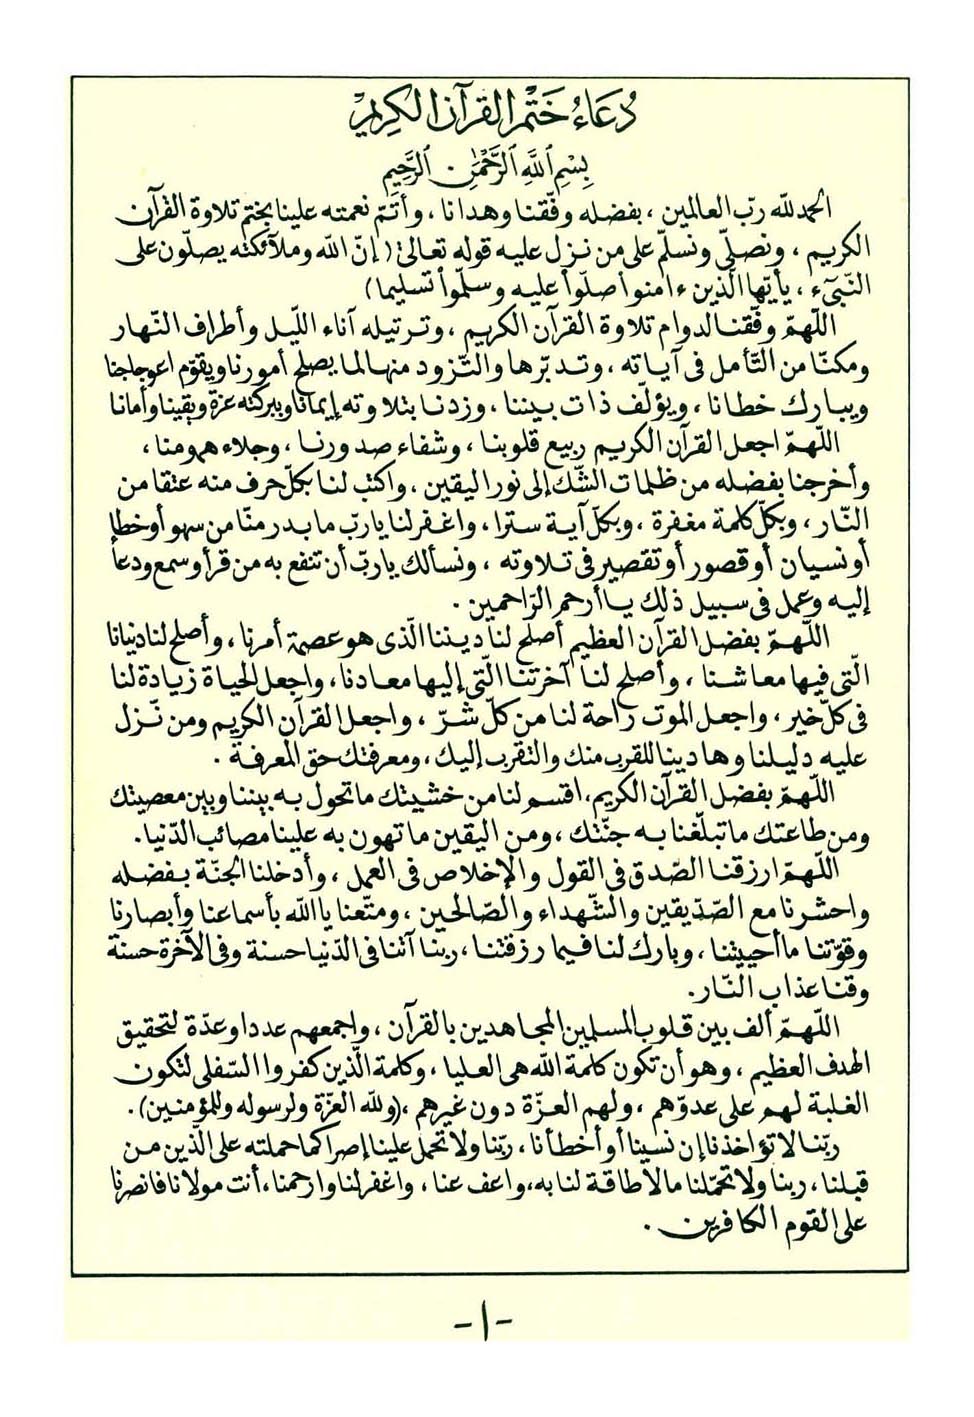 دُعَاءُ خَتْمِ القرآن الكِريم
بِسْمِ ٱللَّهِ ٱلرَّحْمَٰنِ ٱلرَّحِيمِ
الحمد لله ربّ العالمين ، بفضله وفّقنا وهدانا ، وأتمّ نعمته علينا بختم تلاوة القرآن
الكريم ، ونصلّي ونسلّم على من نزل عليه قوله تعالى : ( إنّ الله وملآئكته يصلّون على
النّبىء ، يأيّها الّذين ءامنوا صلّوا عليه وسلّموا تسليما )
اللّهمّ وفّقنا لدوام تلاوة القرآن الكريم ، وترتيله آناء اللّيل وأطراف النّهار
ومكنّا من التّأمل فى آياته ، وتدبّرها والتّزود منها لما يصلح أمورنا ويقوّم اعوجاجنا
ويبارك خطانا ، ويؤلّف ذات بيننا ، وزدنا بتلاوته إيمانا وببركته عزة ويقينا وأمانا
اللّهمّ اجعل القرآن الكريم ربيع قلوبنا ، وشفاء صدورنا ، وجلاء همومنا ،
وأخرجنا بفضله من ظلمات الشّك إلى نور اليقين ، واكتب لنا بكلّ حرف منه عتقا من
النّار ، وبكلّ كلمة مغفرة ، وبكلّ آية سترا ، واغفر لنا يا ربّ ما بدر منّا من سهو أو خطإ
أو نسيان أو قصور أو تقصير فى تلاوته ، ونسألك يا ربّ أن تنفع به من قرأ وسمع ودعا
إليه وعمل فى سبيل ذلك يا أرحم الرّاحمين .
اللّهمّ بفضل القرآن العظيم أصلح لنا ديننا الّذى هو عصمة أمرنا ، وأصلح لنا دنيانا
الّتى فيها معاشنا ، وأصلح لنا آخرتنا الّتى إليها معادنا ، واجعل الحياة زيادة لنا
فى كلّ خير ، واجعل الموت راحة لنا من كلّ شرّ ، واجعل القرآن الكريم ومن نّزل
عليه دليلنا وهادينا للقرب منك والتقرب إليك ، ومعرفتك حق المعرفة .
اللّهمّ بفضل القرآن الكريم ، اقسم لنا من خشيتك ما تحول به بيننا وبين معصيتك
ومن طاعتك ما تبلّغنا به جنّتك ، ومن اليقين ما تهون به علينا مصائب الدّنيا .
اللّهمّ ارزقنا الصّدق فى القول والإخلاص فى العمل ، وأدخلنا الجنّة بفضله
واحشرنا مع الصّدّيقين والشّهداء والصّالحين ، ومتّعنا يا الله بأسماعنا وأبصارنا
وقوّتنا ما أحييتنا ، وبارك لنا فيما رزقتنا ، ربنا آتنا فى الدّنيا حسنة وفى الآخرة حسنة
وقنا عذاب النّار .
اللّهمّ ألف بين قلوب المسلمين المجاهدين بالقرآن ، واجمعهم عددا وعدّة لتحقيق
الهدف العظيم ، وهو أن تكون كلمة الله هى العليا ، وكلمة الّذين كفروا السّفلى لتكون
الغلبة لهم على عدوّهم ، ولهم العزّة دون غيرهم ، ( ولله العزّة ولرسوله وللمؤمنين ) .
ربّنا لا تؤاخذنا إن نسينا أو أخطأنا ، ربّنا ولا تحمل علينا إصرا كما حملته على الّذين من
قبلنا ، ربنا ولا تحمّلنا ما لا طاقة لنا به ، واعف عنا ، واغفر لنا وارحمنا ، أنت مولانا فانصرنا
على القوم الكافرين .
-١-